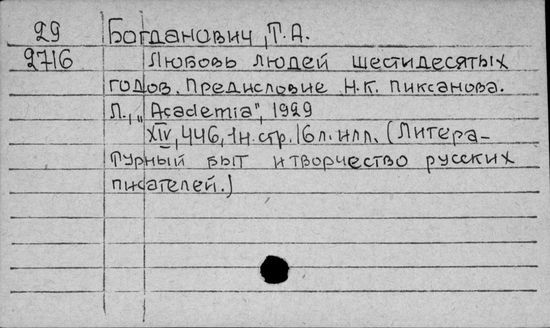 29 Богданович, Т.А.
2716 Любовь людей шестидесятых
годов. Предисловие Н.К. Пиксанова.
Л., „Academia", 1929
XIV, 446, 1н.стр. 16л. илл. (Литера-
турный быт и творчество русских
писателей.)